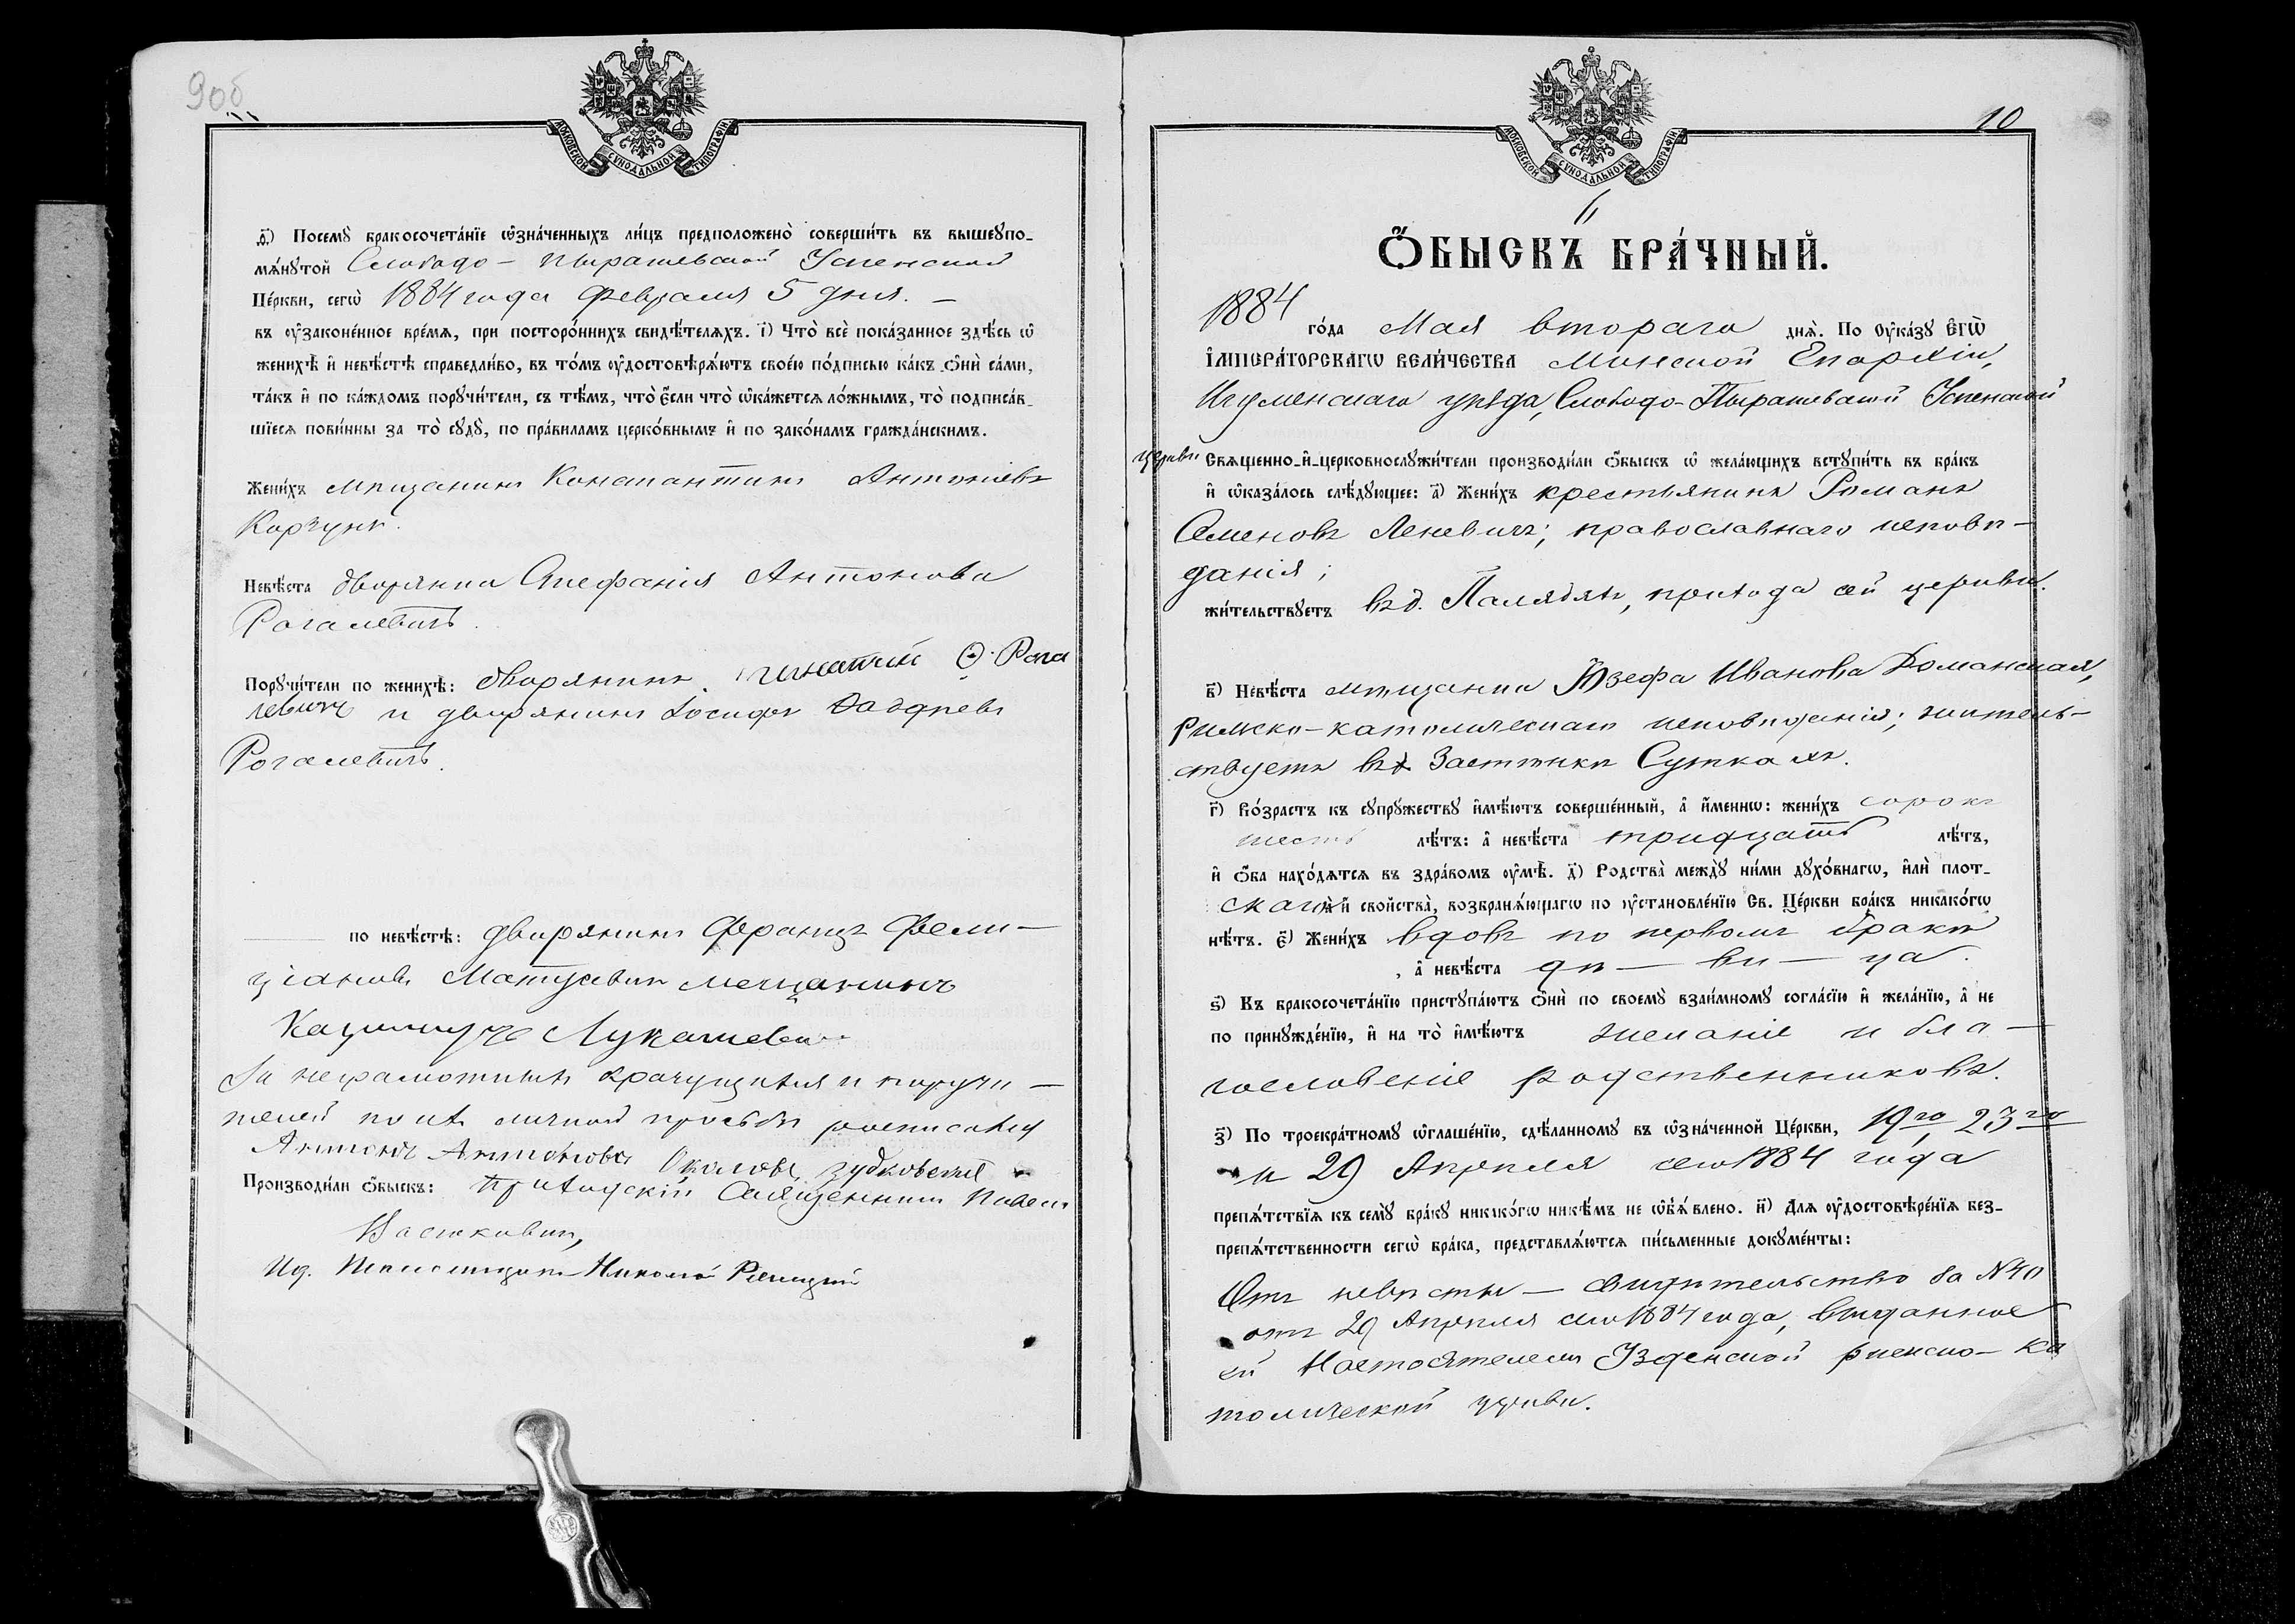 9 об
МОСКОВСКОЙ СУНОДАЛЬНОЙ ТИПОГРАФІИ
ѳ҃) Посемꙋ̀ бракосочета́нїе ѡ҆зна́ченныхъ ли́цъ предположено̀ соверши́ть въ вышеꙋпо-
мѧ́нꙋтой Слободо-Пырашевской Успенской
Це́ркви, сегѡ̀ 1884 года Февраля 5 дня. —
въ ᲂу҆законе́нное вре́мѧ, при посторо́ннихъ свидѣ́телѧхъ. і҃) Что̀ всѐ пока́занное здѣ́сь ѡ҆
женихѣ̀ и҆ невѣ́стѣ справедли́во, въ то́мъ ᲂу҆достовѣрѧ́ютъ свое́ю по́дписью ка́къ ѻ҆нѝ са́ми,
та́къ и҆ по ка́ждомъ порꙋчи́тели, съ тѣ́мъ, что̀ є҆́сли что̀ ѡ҆ка́жетсѧ ло́жнымъ, то̀ подписа́в-
шїесѧ пови́нны за то̀ сꙋдꙋ̀, по пра́виламъ церко́внымъ и҆ по зако́намъ гражда́нскимъ.
Жени́хъ мѣщанинъ Константинъ Антоніевъ
Корзунъ.
Невѣ́ста дворянка Стефанія Антонова
Рогалевичъ.
Порꙋчи́тели по женихѣ̀: дворянинъ Игнатій Ѳ. Рога
левичъ и дворянинъ Іосифъ Рогалевичъ.
по невѣ́стѣ: дворянинъ Францъ Фели-
ціановъ Матусевичъ мещанинъ
Казимиръ Лукашеви
За неграмотныхъ брачущихся и поручи-
телей по ихъ личной просьбѣ росписался
Антонъ Антоновъ
Производи́ли ѻ҆́быскъ: Приходскій Священникъ Павелъ
Наркевичъ,
Ид. Псаломщика Николай
10
МОСКОВСКОЙ СУНОДАЛЬНОЙ ТИПОГРАФІИ
6
Ѻ҆́БЫСКЪ БРА́ЧНЫЙ.
1884 го́да Мая втораго днѧ̀. По ᲂу҆ка́зꙋ Є҆ГѠ̀
И҆МПЕРА́ТОРСКАГѠ ВЕЛИ́ЧЕСТВА Минской Епархіи,
Игуменскаго уѣзда, Слободо-Пырашевской Успенской
церкви Свѧще́нно-и҆-церковнослꙋжи́тели производи́ли ѻ҆́быскъ ѡ҆ жела́ющихъ встꙋпи́ть въ бра́къ
и҆ ѡ҆каза́лось слѣ́дꙋющее: а҃) Жени́хъ крестьянинъ Романъ
Семеновъ Леневичъ; православнаго исповѣ-
данія;
жи́тельствꙋетъ въ д. Палядяхъ, прихода сей церкви.
в҃) Невѣ́ста мѣщанка Юзефа Иванова Романская,
римско-католическаго исповѣданія; житель-
ствуетъ въ Застѣнкѣ Суткахъ.
г҃) Во́зрастъ къ сꙋпрꙋ́жествꙋ и҆мѣ́ютъ соверше́нный, а҆ и҆́меннѡ: жени́хъ сорокъ
шесть лѣ́тъ: а҆ невѣ́ста тридцать лѣ́тъ,
и҆ ѻ҆́ба нахо́дѧтсѧ въ здра́вомъ ᲂу҆мѣ̀. д҃) Родства̀ междꙋ̀ ни́ми дꙋхо́внагѡ, и҆лѝ плот-
скаго и҆ свойства̀, возбранѧ́ющагѡ по ᲂу҆становле́нїю Св. Це́ркви бра́къ никако́гѡ
нѣ́тъ. є҃) Жени́хъ вдовъ по первомъ бракѣ
, а҆ невѣ́ста дѣ—ви—ца.
ѕ҃) Къ бракосочета́нїю пристꙋпа́ютъ ѻ҆нѝ по своемꙋ̀ взаи́мномꙋ согла́сїю и҆ жела́нїю, а҆ не
по принꙋжде́нїю, и҆ на то̀ и҆мѣ́ютъ желаніе и бла-
гословеніе родственниковъ.
з҃) По троекра́тномꙋ ѡ҆глаше́нїю, сдѣ́ланномꙋ въ ѡ҆зна́ченной Це́ркви, 19го, 23го
и 29 Апрѣля сего 1884 года
препѧ́тствїѧ къ семꙋ̀ бра́кꙋ никако́гѡ никѣ́мъ не ѡ҆бъѧ́влено. и҃) Длѧ ᲂу҆достовѣре́нїѧ без-
препѧ́тственности сегѡ̀ бра́ка, представлѧ́ютсѧ пи́сьменные докꙋме́нты:
Отъ невѣсты — свидѣтельство за №40
отъ 29 Апрѣля сего 1884 года, выданное
ей Настоятелемъ Узденской римско-ка
толической церкви.